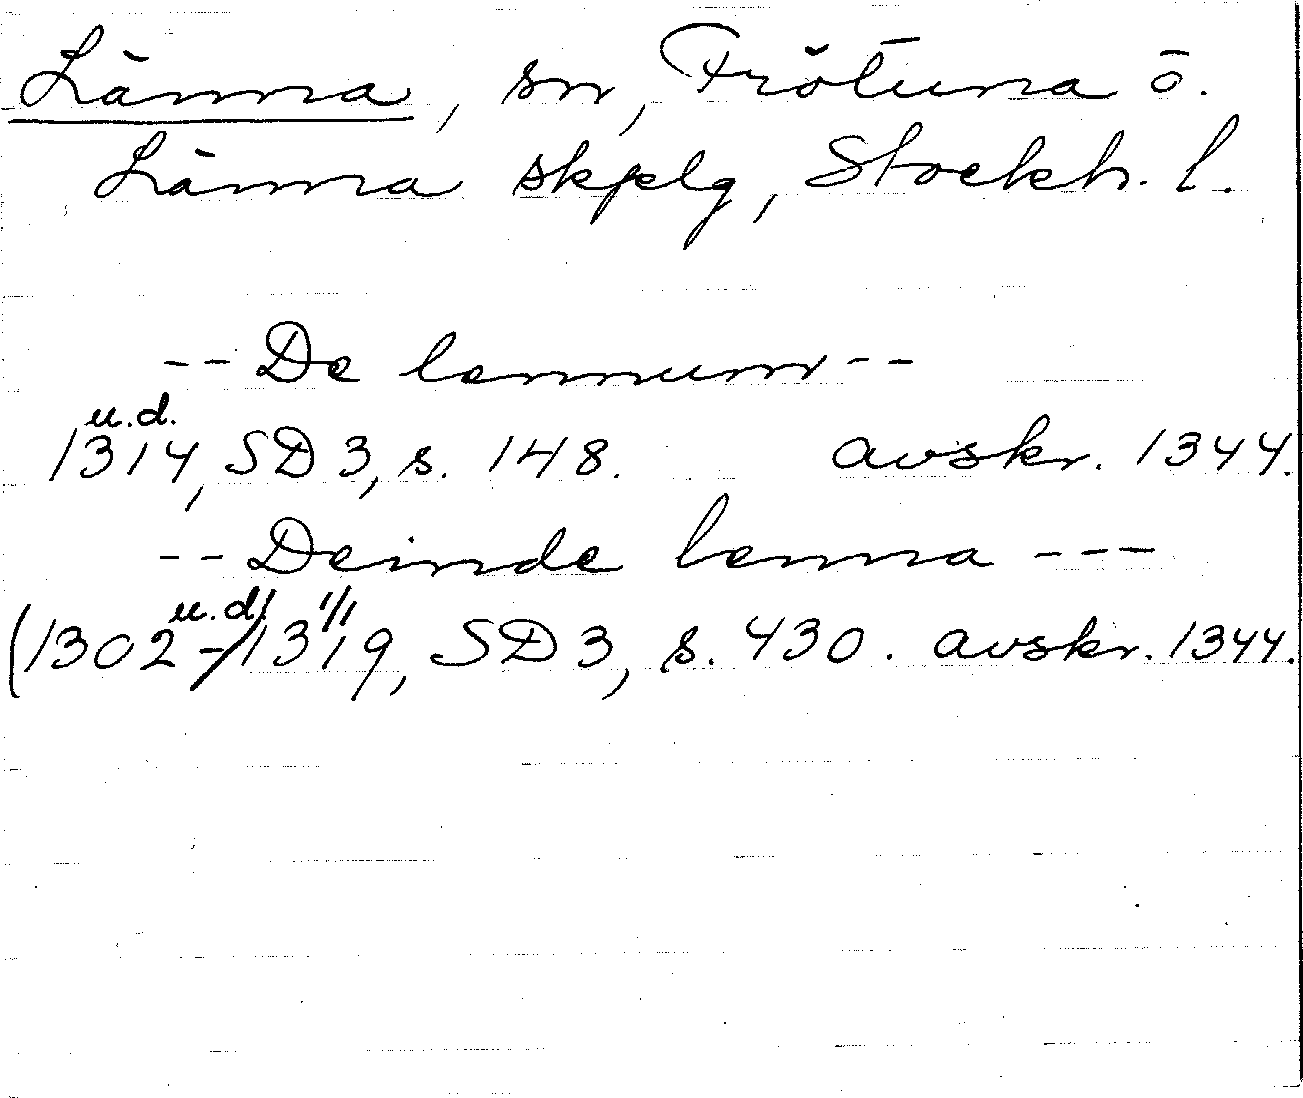 Länna, sn, Frötuna o.
Länna skplg, Stockh. l.
-- De lennum --
u.d.
1314, SD 3, s. 148. avskr. 1344.
-- Deinde lenna ---
u.d. 1/1
(1302-/1319, SD 3, s. 430. avskr. 1344.